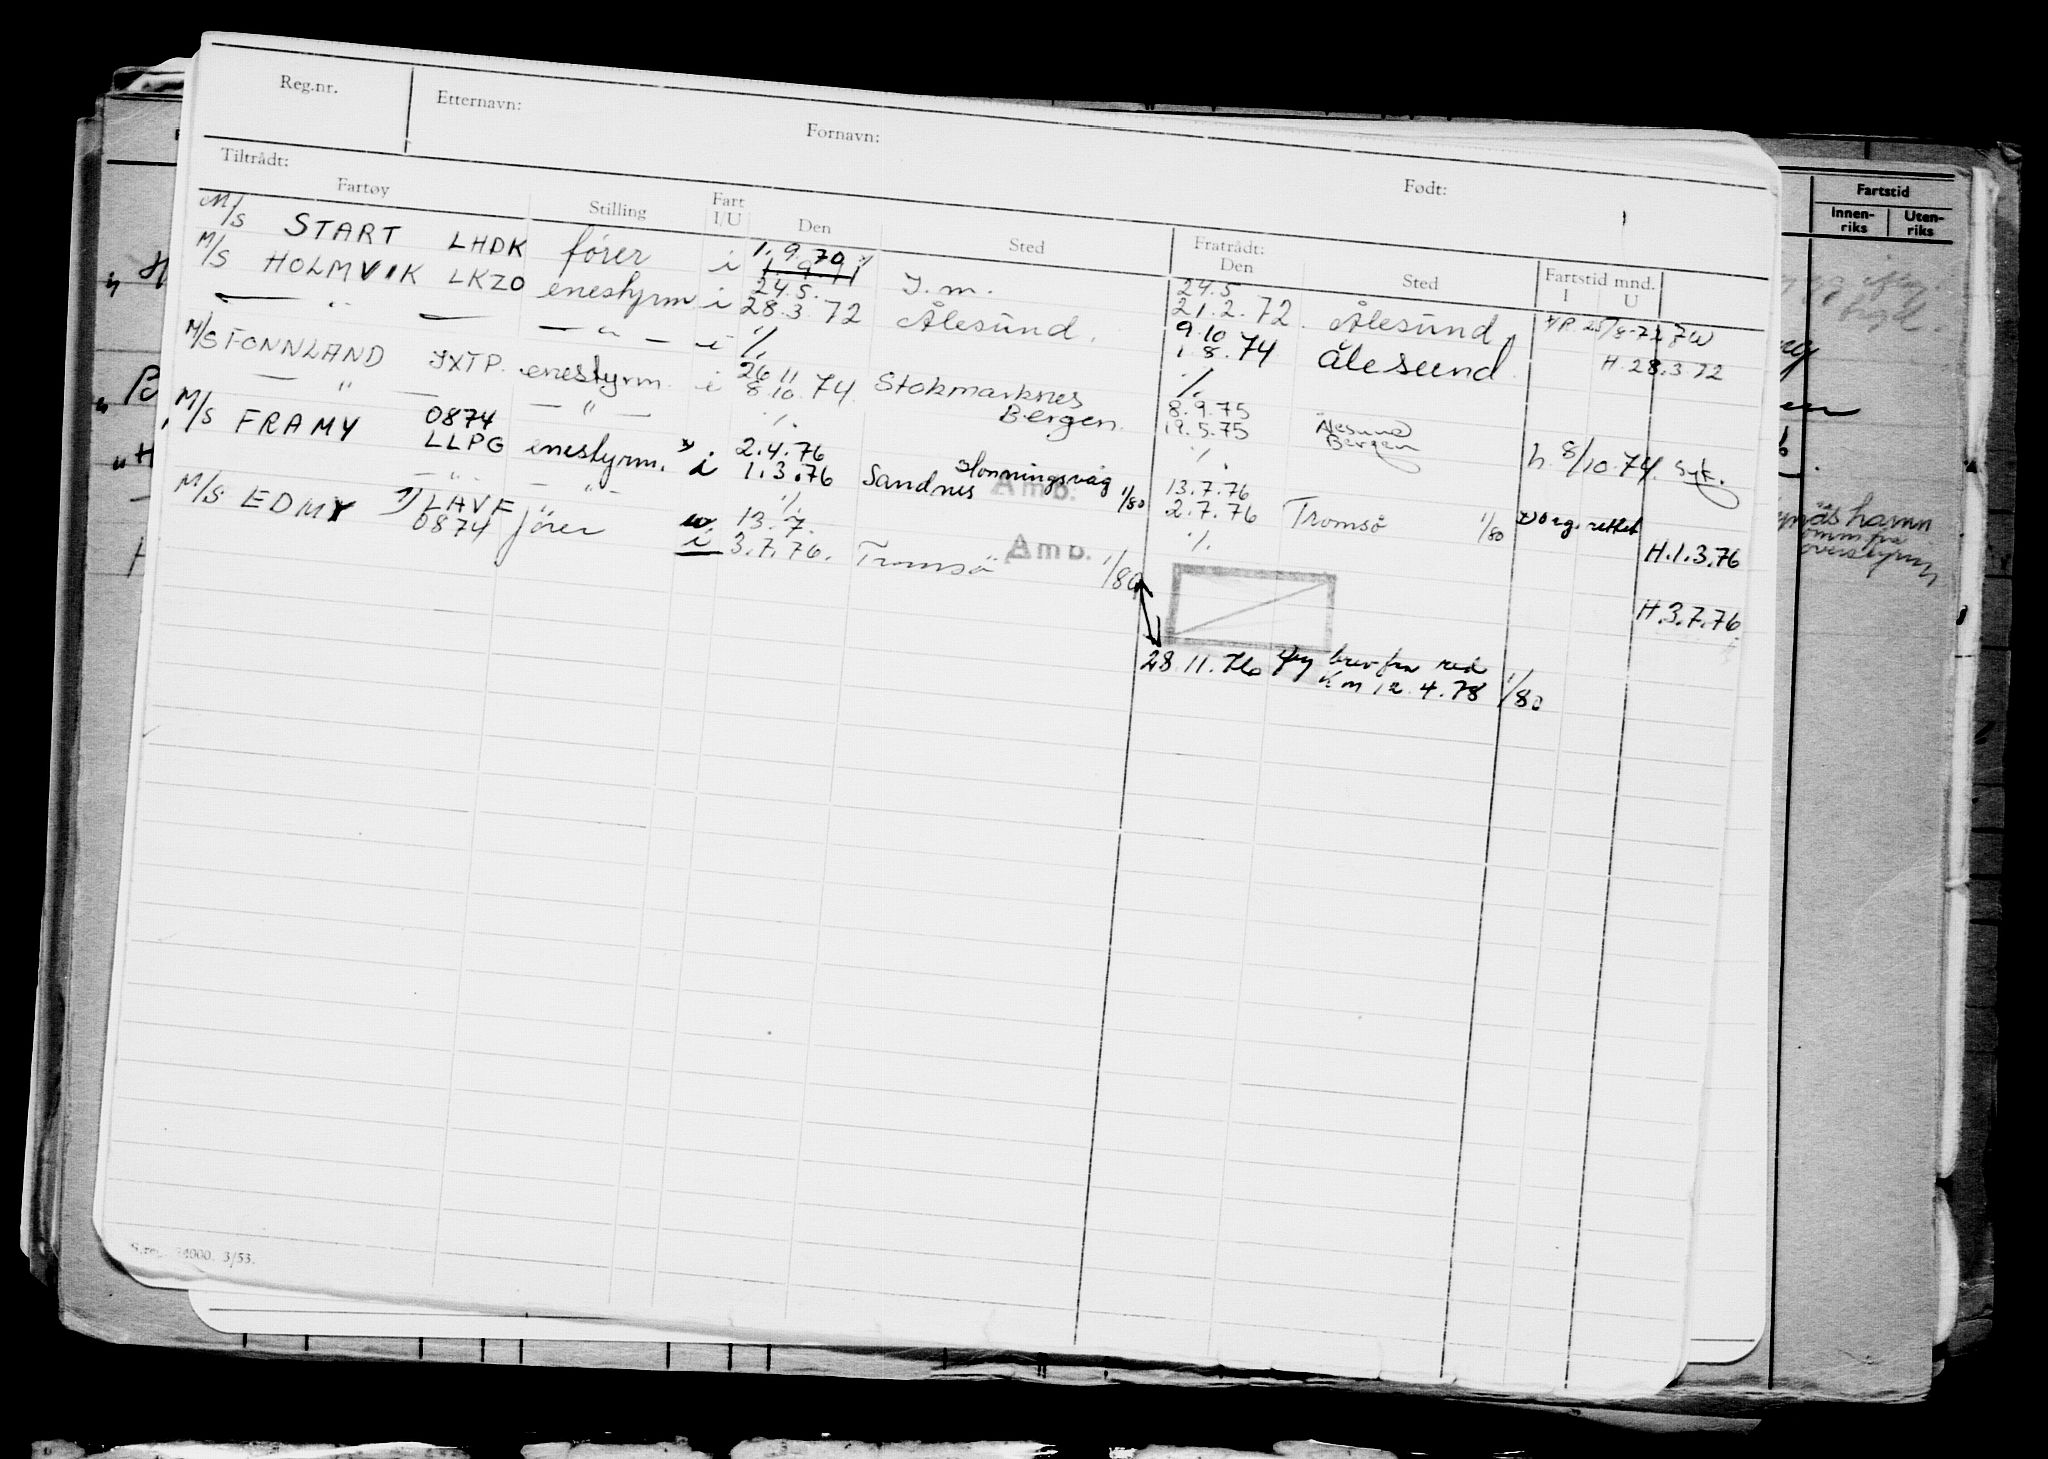 Reg.nr. Etternavn: Fornavn: Født:
Tiltrådt: Fratrådt:
Fartøy Stilling Fart I/U Den Sted Den Sted Fartstid mnd. I U
M/S START LHDK fører i 1.9.70 ./. J.m. 24.5 21.2.72 Ålesund
1.9.71
M/S HOLMVIK LKZO enestyrm i 24.5. 28.3.72 Ålesund. 9.10 1.8.74 Ålesund H 28.3.72
— " — — " — i ./. ./.
M/S FONNLAND JXTP. enestyrm. i 26.11 8.10.74 Stokmarknes Bergen. 8.9.75 19.5.75 Ålesund Bergen h. 8/10.74. syk.
— " — — " — ./. ./.
M/S FRAMY 0874 LLPG enestyrm. i 2.4.76 1.3.76 Honningsvåg Sandnes Amb. 1/80 13.7.76 2.7.76 Tromsø 1/80 H.1.3.76
— " — — " — ./. ./.
M/S EDMY 1) LAVF 0874 fører i 13.7. 3.7.76. Tromsø Amb. 1/80 H.3.7.76
28.11.76 brev fra red
Km 12.4.78 1/80
S.reg. 24000. 3/53.
Fartstid
Innen-riks Uten-riks
hamn